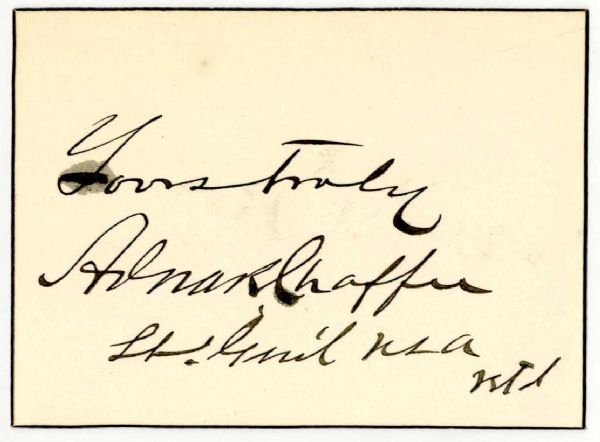 Yours truly
Adna R Chaffee
Lt. Gen'l USA
retd